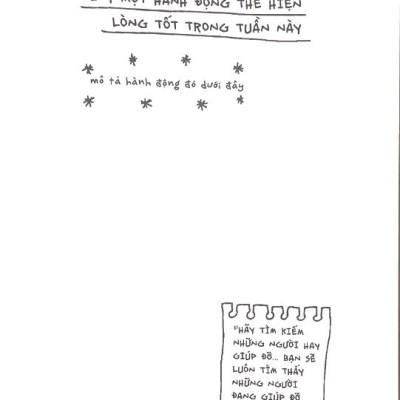 MỘT HÀNH ĐỘNG THỂ HIỆN
LÒNG TỐT TRONG TUẦN NÀY
mô tả hành động đó dưới đây
"HÃY TÌM KIẾM
NHỮNG NGƯỜI HAY
GIÚP ĐỠ... BẠN SẼ
LUÔN TÌM THẤY
NHỮNG NGƯỜI
ĐANG GIÚP ĐỠ